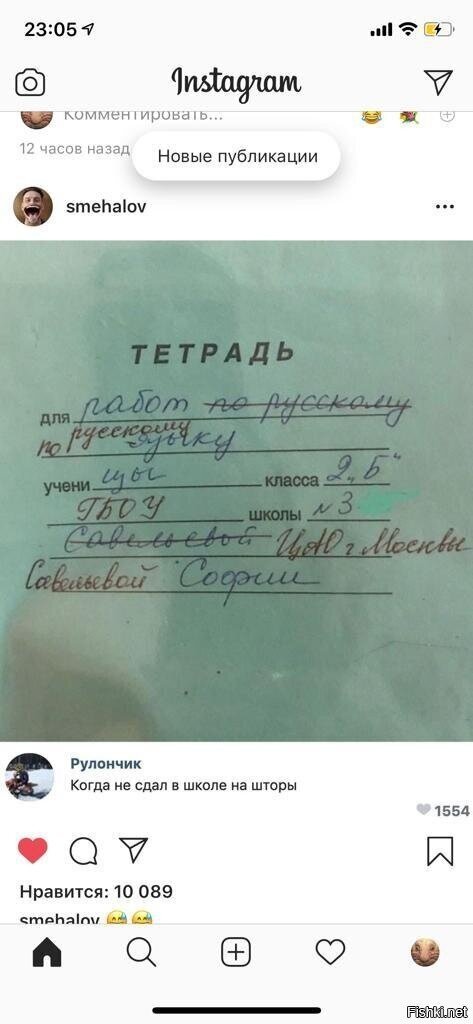 23:05
Instagram
Комментировать...
12 часов назад
Новые публикации
smehalov
ТЕТРАДЬ
для работ по русскому
по русскому языку
учени цы класса 2„Б“
ГБОУ школы №3
Савельевой ЦАО г. Москвы
Савельевой Софии
Рулончик
Когда не сдал в школе на шторы
1554
Нравится: 10 089
smehalov 😅😅
Fishki.net